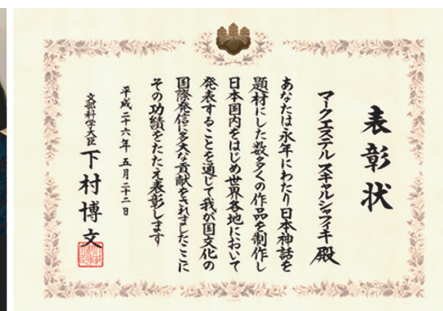 表彰状
マークエステル スキャルシャフィキ 殿
あなたは永年にわたり日本神話を
題材にした数多くの作品を制作し
日本国内をはじめ世界各地において
発表することを通じて我が国文化の
国際発信に多大な貢献をされましたことに
その功績をたたえ表彰します
平成二十六年五月二十二日
文部科学大臣 下村博文